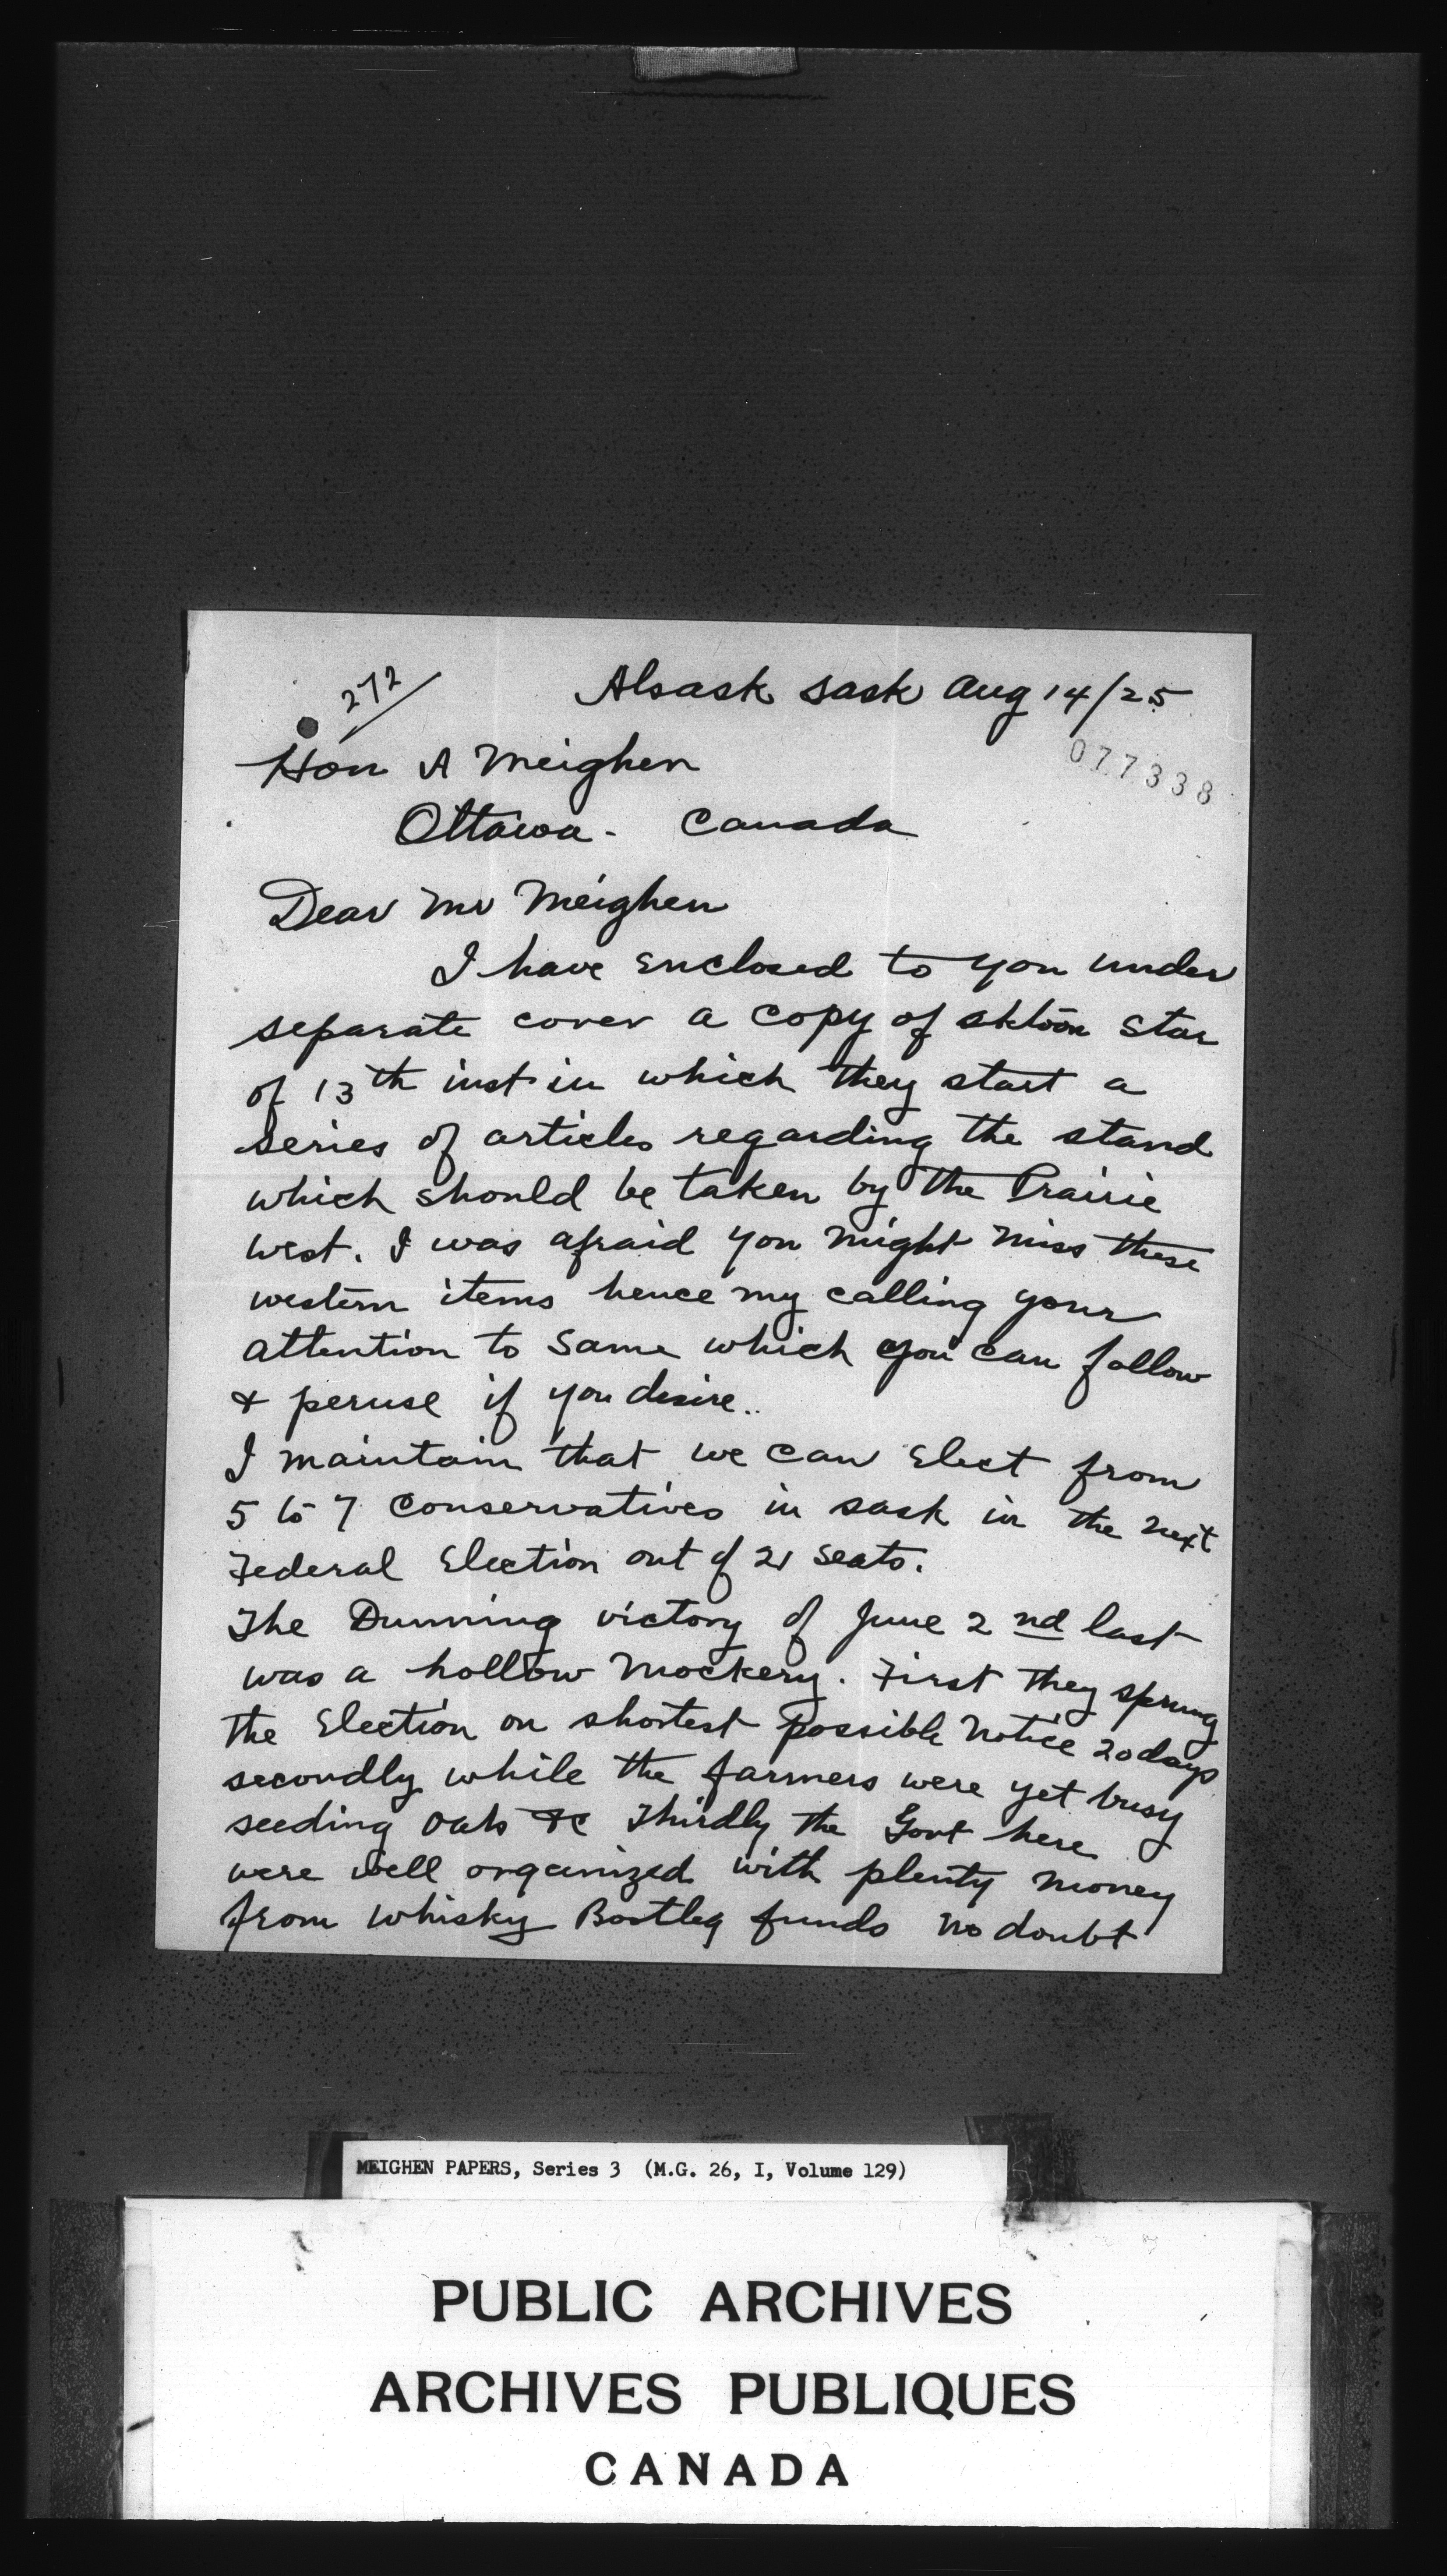 272/
Alsask Sask Aug 14/25
077338
Hon A Meighen
Ottawa - Canada
Dear Mr Meighen
I have enclosed to you under
separate cover a copy of sktoon Star
of 13th inst in which they start a
series of articles regarding the stand
which should be taken by the Prairie
West. I was afraid you might miss these
western items hence my calling your
attention to same which you can follow
& peruse if you desire..
I maintain that we can Elect from
5 to 7 Conservatives in Sask in the next
Federal Election out of 21 seats.
The Dunning victory of June 2nd last
was a hollow mockery. First they sprung
the Election on shortest possible notice 20 days
secondly while the farmers were yet busy
seeding Oats &c Thirdly the Govt here
were well organized with plenty money
from whisky Bootleg funds no doubt
MEIGHEN PAPERS, Series 3 (M.G. 26, I, Volume 129)
PUBLIC ARCHIVES
ARCHIVES PUBLIQUES
CANADA